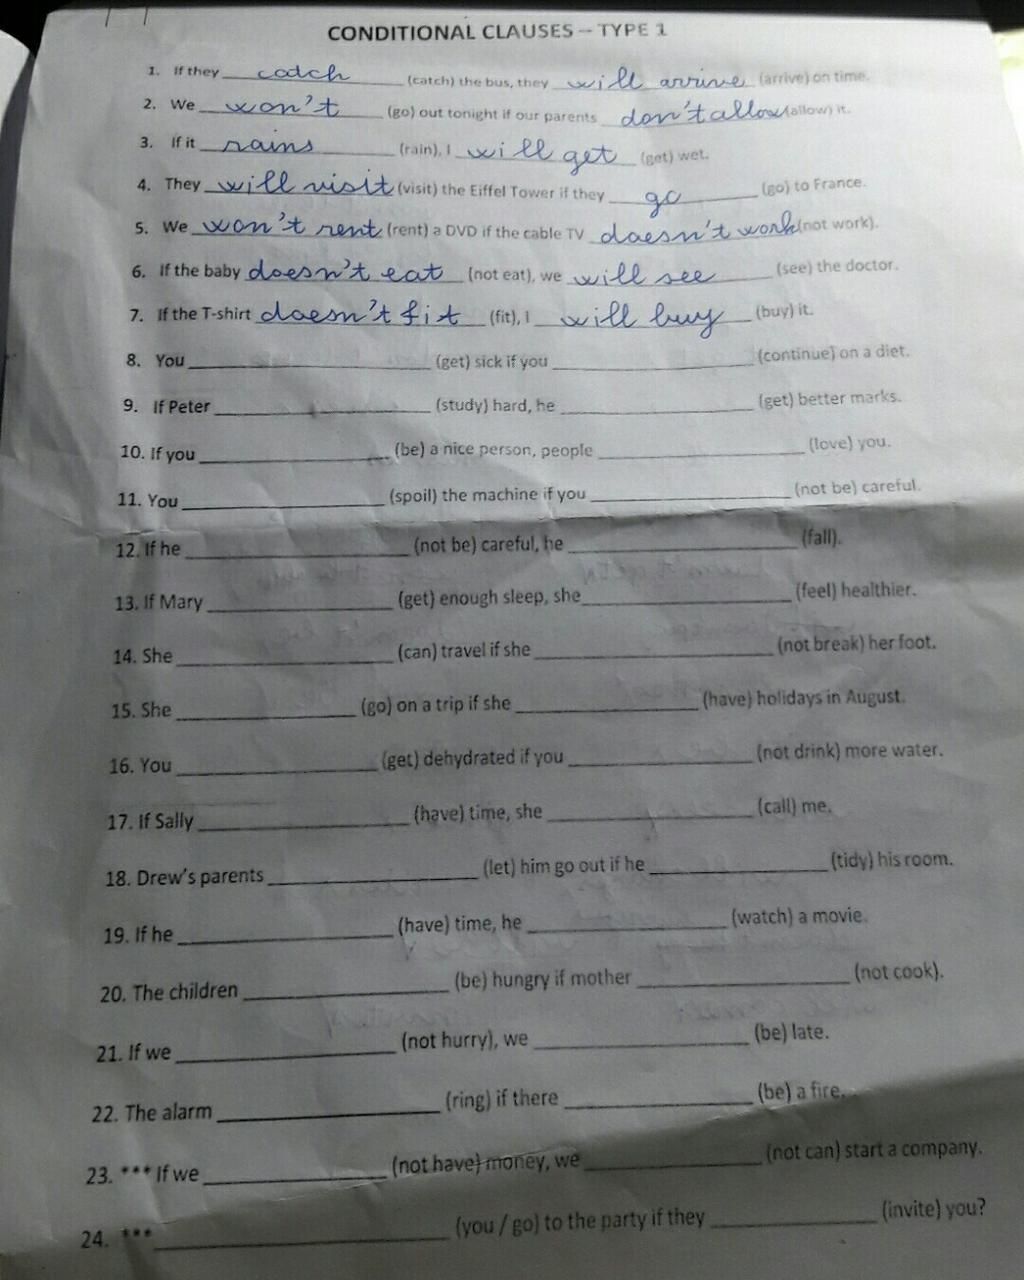 CONDITIONAL CLAUSES – TYPE 1
1. If they catch (catch) the bus, they will arrive (arrive) on time.
2. We won't (go) out tonight if our parents don't allow (allow) it.
3. If it rains (rain), I will get (get) wet.
4. They will visit (visit) the Eiffel Tower if they go (go) to France.
5. We won't rent (rent) a DVD if the cable TV doesn't work (not work).
6. If the baby doesn't eat (not eat), we will see (see) the doctor.
7. If the T-shirt doesn't fit (fit), I will buy (buy) it.
8. You ____________ (get) sick if you ____________ (continue) on a diet.
9. If Peter ____________ (study) hard, he ____________ (get) better marks.
10. If you ____________ (be) a nice person, people ____________ (love) you.
11. You ____________ (spoil) the machine if you ____________ (not be) careful.
12. If he ____________ (not be) careful, he ____________ (fall).
13. If Mary ____________ (get) enough sleep, she ____________ (feel) healthier.
14. She ____________ (can) travel if she ____________ (not break) her foot.
15. She ____________ (go) on a trip if she ____________ (have) holidays in August.
16. You ____________ (get) dehydrated if you ____________ (not drink) more water.
17. If Sally ____________ (have) time, she ____________ (call) me.
18. Drew's parents ____________ (let) him go out if he ____________ (tidy) his room.
19. If he ____________ (have) time, he ____________ (watch) a movie.
20. The children ____________ (be) hungry if mother ____________ (not cook).
21. If we ____________ (not hurry), we ____________ (be) late.
22. The alarm ____________ (ring) if there ____________ (be) a fire.
23. *** If we ____________ (not have) money, we ____________ (not can) start a company.
24. *** ____________ (you / go) to the party if they ____________ (invite) you?